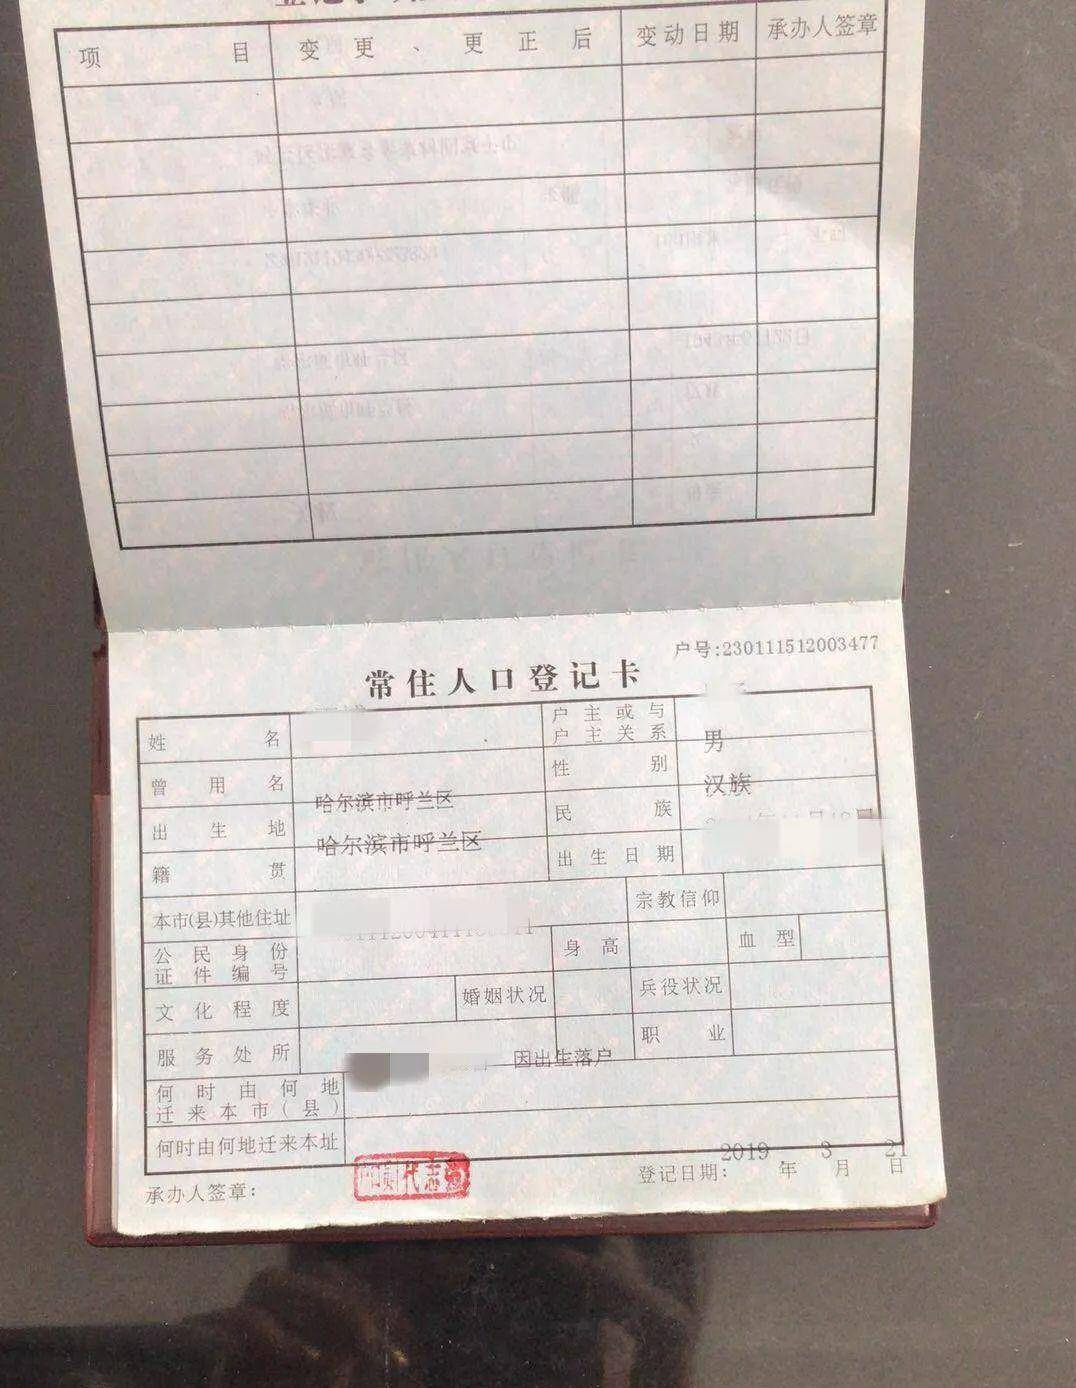 项 目 变 更 、 更 正 后 变动日期 承办人签章
户号:230111512003477
常住人口登记卡
姓 名
户 主 或 与
户 主 关 系
男
曾 用 名
性 别
汉族
哈尔滨市呼兰区
出 生 地
民 族
哈尔滨市呼兰区
籍 贯
出生日期
本市(县)其他住址
宗教信仰
公 民 身 份
证 件 编 号
身 高
血 型
文 化 程 度
婚姻状况
兵役状况
服 务 处 所
职 业
因出生落户
何 时 由 何 地
迁 来 本 市 ( 县 )
何时由何地迁来本址
承办人签章:
登记日期: 2019 年 3 月 21 日